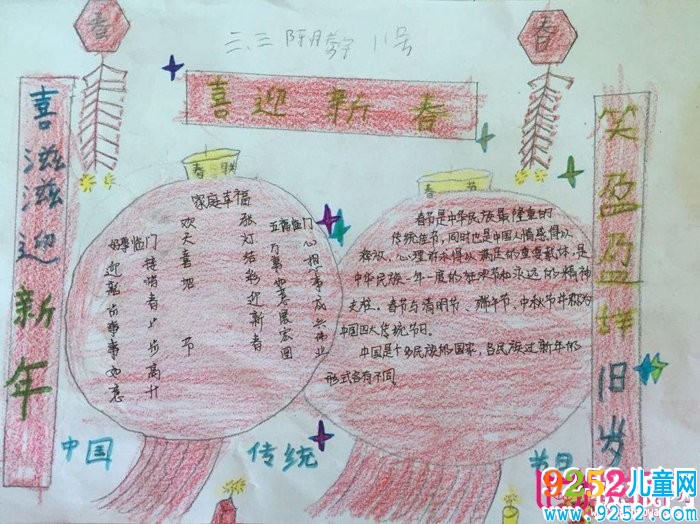 三.三 11号
春
春
喜迎新春
喜滋滋迎新年
笑盈盈辞旧岁
春联
家庭幸福
张灯结彩迎新春
欢天喜地
节
好事临门
迎新春事事如意
接喘者步步高升
五福临门
万事如意展宏图
心想事成兴伟业
春节
春节是中华民族最隆重的
传统佳节,同时也是中国人情感得以
释放、心理诉求得以满足的重要载体,是
中华民族一年一度的狂欢节和永远的精神
支柱。春节与清明节、端午节、中秋节并称为
中国四大传统节日。
中国是个多民族的国家,各民族过新年的
形式各有不同
中国
传统
节日
9252儿童网
www.9252.com